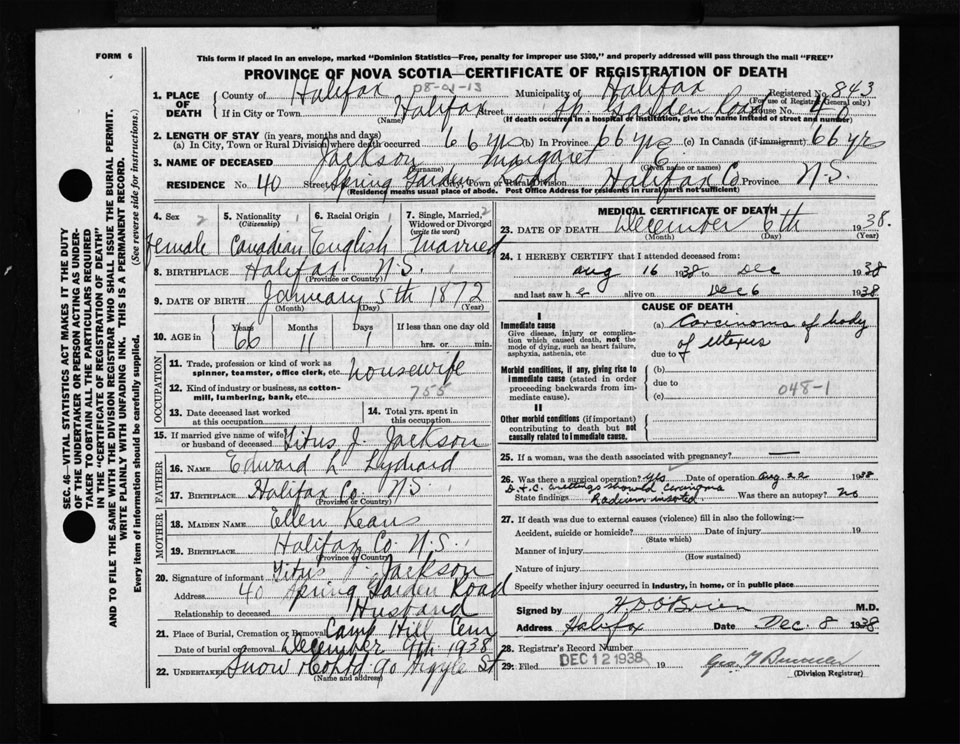 FORM 6
This form if placed in an envelope, marked "Dominion Statistics—Free, penalty for improper use $300," and properly addressed will pass through the mail "FREE"
PROVINCE OF NOVA SCOTIA—CERTIFICATE OF REGISTRATION OF DEATH
SEC. 46—VITAL STATISTICS ACT MAKES IT THE DUTY
OF THE UNDERTAKER OR PERSON ACTING AS UNDER-
TAKER TO OBTAIN ALL THE PARTICULARS REQUIRED
IN THE "CERTIFICATE OF REGISTRATION OF DEATH"
AND TO FILE THE SAME WITH THE DIVISION REGISTRAR WHO SHALL ISSUE THE BURIAL PERMIT.
WRITE PLAINLY WITH UNFADING INK. THIS IS A PERMANENT RECORD.
Every item of information should be carefully supplied. (See reverse side for instructions.)
1. PLACE OF DEATH County of Halifax 08-01-13 Municipality of Halifax Registered No. 843
(For use of Registrar General only)
If in City or Town Halifax Street Sp. Garden Road House No. 40
(Name) (If death occurred in a hospital or institution, give the name instead of street and number)
2. LENGTH OF STAY (in years, months and days)
(a) In City, Town or Rural Division where death occurred 66 yrs (b) In Province 66 yrs (c) In Canada (if immigrant) 66 yrs
3. NAME OF DECEASED Jackson Margaret E.
(Surname) (Given name or names)
RESIDENCE No. 40 Street Spring Garden Road City, Town or Rural Division Halifax Co Province N.S.
(Residence means usual place of abode. Post Office Address for residents in rural parts not sufficient)
4. Sex 2 Female
5. Nationality (Citizenship) Canadian
6. Racial Origin 1 English
7. Single, Married, Widowed or Divorced (write the word) 2 Married
8. BIRTHPLACE Halifax N.S.
(Province or Country)
9. DATE OF BIRTH January 5th 1872
(Month) (Day) (Year)
10. AGE in Years 66 Months 11 Days 1 If less than one day old
hrs. or min.
OCCUPATION
11. Trade, profession or kind of work as spinner, teamster, office clerk, etc. Housewife
12. Kind of industry or business, as cotton-mill, lumbering, bank, etc. 755
13. Date deceased last worked at this occupation
14. Total yrs. spent in this occupation
15. If married give name of wife or husband of deceased Titus J. Jackson
FATHER
16. NAME Edward L Lydiard
17. BIRTHPLACE Halifax Co. N.S.
(Province or Country)
MOTHER
18. MAIDEN NAME Ellen
19. BIRTHPLACE Halifax Co. N.S.
(Province or Country)
20. Signature of informant Titus J. Jackson
Address 40 Spring Garden Road
Relationship to deceased Husband
21. Place of Burial, Cremation or Removal Camp Hill Cem
Date of burial or removal December 9th 1938
22. UNDERTAKER Snow & Co Ltd 90 Argyle St
(Name and address)
MEDICAL CERTIFICATE OF DEATH
23. DATE OF DEATH December 6th 1938.
(Month) (Day) (Year)
24. I HEREBY CERTIFY that I attended deceased from:
Aug 16 1938 to Dec 1938
and last saw h er alive on Dec 6 1938.
CAUSE OF DEATH
I
Immediate cause
Give disease, injury or complication which caused death, not the mode of dying, such as heart failure, asphyxia, asthenia, etc.
(a) Carcinoma of body
of uterus
due to
Morbid conditions, if any, giving rise to immediate cause (stated in order proceeding backwards from immediate cause).
(b)
due to
(c) 048-1
II
Other morbid conditions (if important) contributing to death but not causally related to immediate cause.
25. If a woman, was the death associated with pregnancy? —
26. Was there a surgical operation? Yes Date of operation Aug 22 1938
State findings D. & C. curettings showed carcinoma
Radium inserted. Was there an autopsy? No
27. If death was due to external causes (violence) fill in also the following:—
Accident, suicide or homicide? Date of injury 19
(State which)
Manner of injury
(How sustained)
Nature of injury
Specify whether injury occurred in industry, in home, or in public place
Signed by W D O'Brien M.D.
Address Halifax Date Dec. 8 1938
28. Registrar's Record Number
29. Filed DEC 12 1938 19
(Division Registrar)